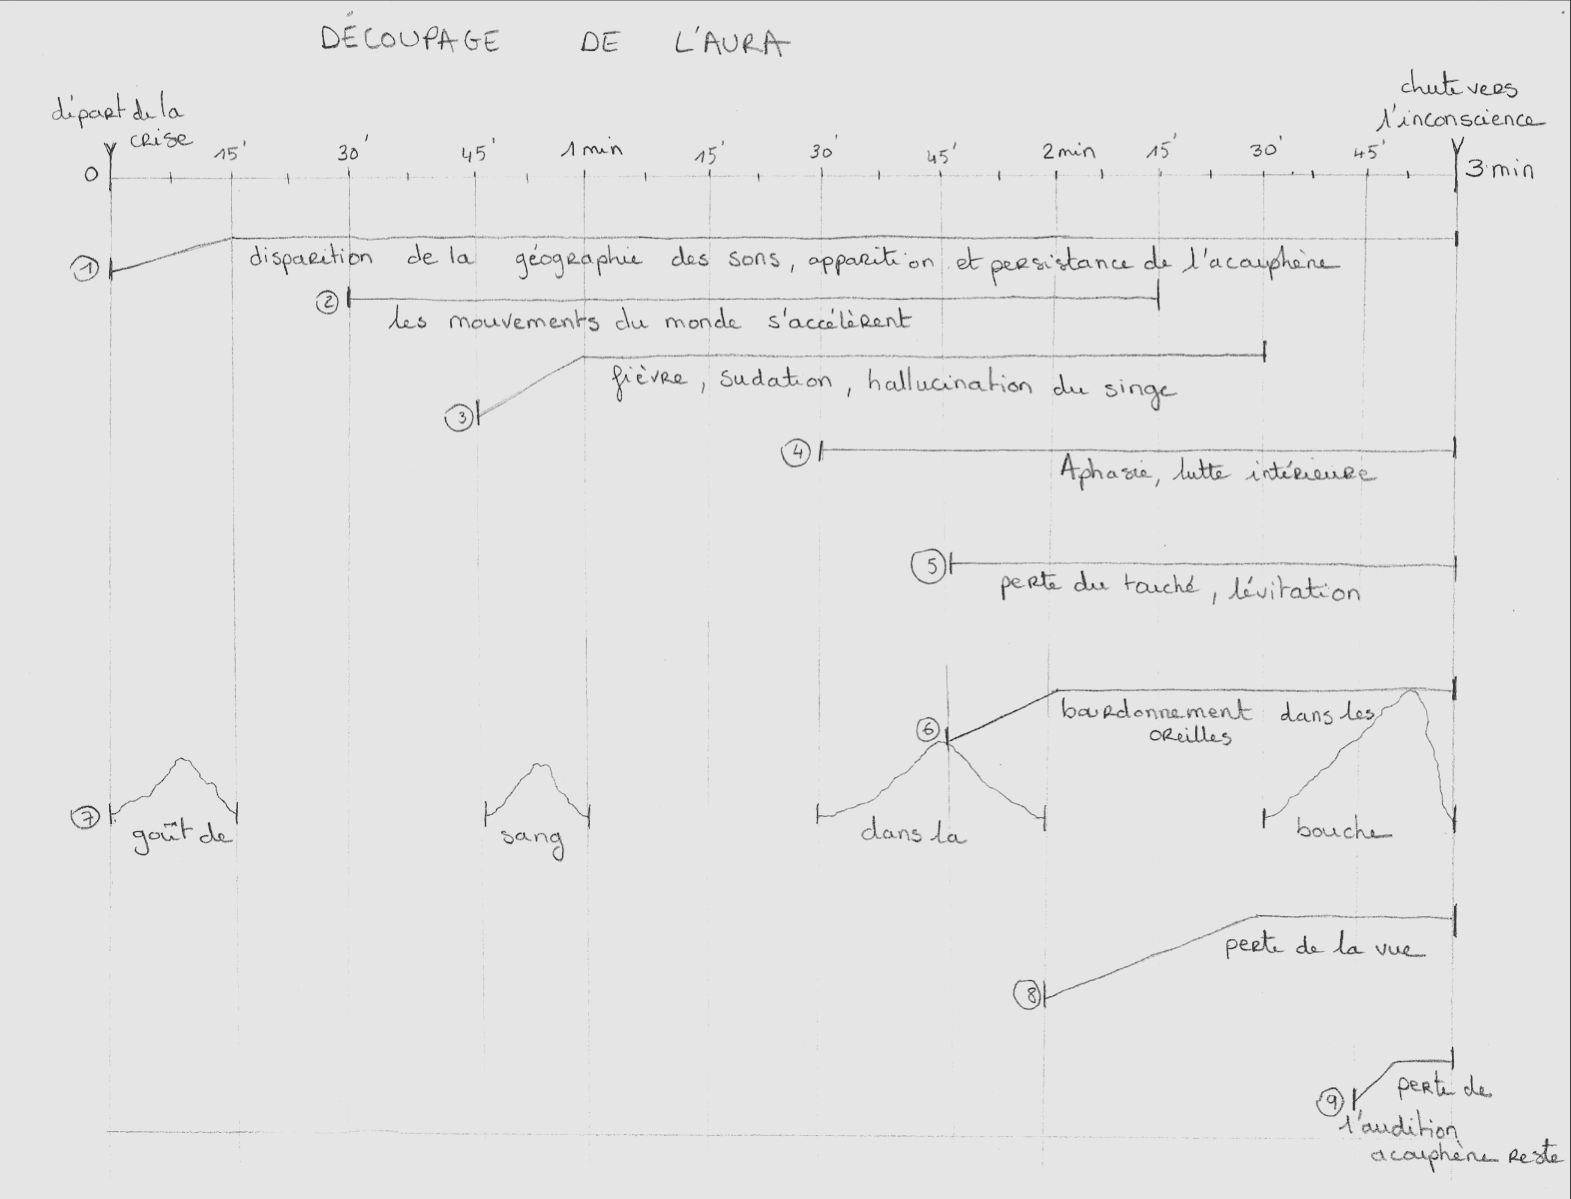 DÉCOUPAGE DE L'AURA
départ de la
crise
chute vers
l'inconscience
0 15' 30' 45' 1 min 15' 30' 45' 2 min 15' 30' 45' 3 min
1 disparition de la géographie des sons, apparition et persistance de l'acouphène
2 les mouvements du monde s'accélèrent
3 fièvre, sudation, hallucination du singe
4 Aphasie, lutte intérieure
5 perte du touché, lévitation
6 bourdonnement dans les
oreilles
7 goût de sang dans la bouche
8 perte de la vue
9 perte de
l'audition
acouphène reste